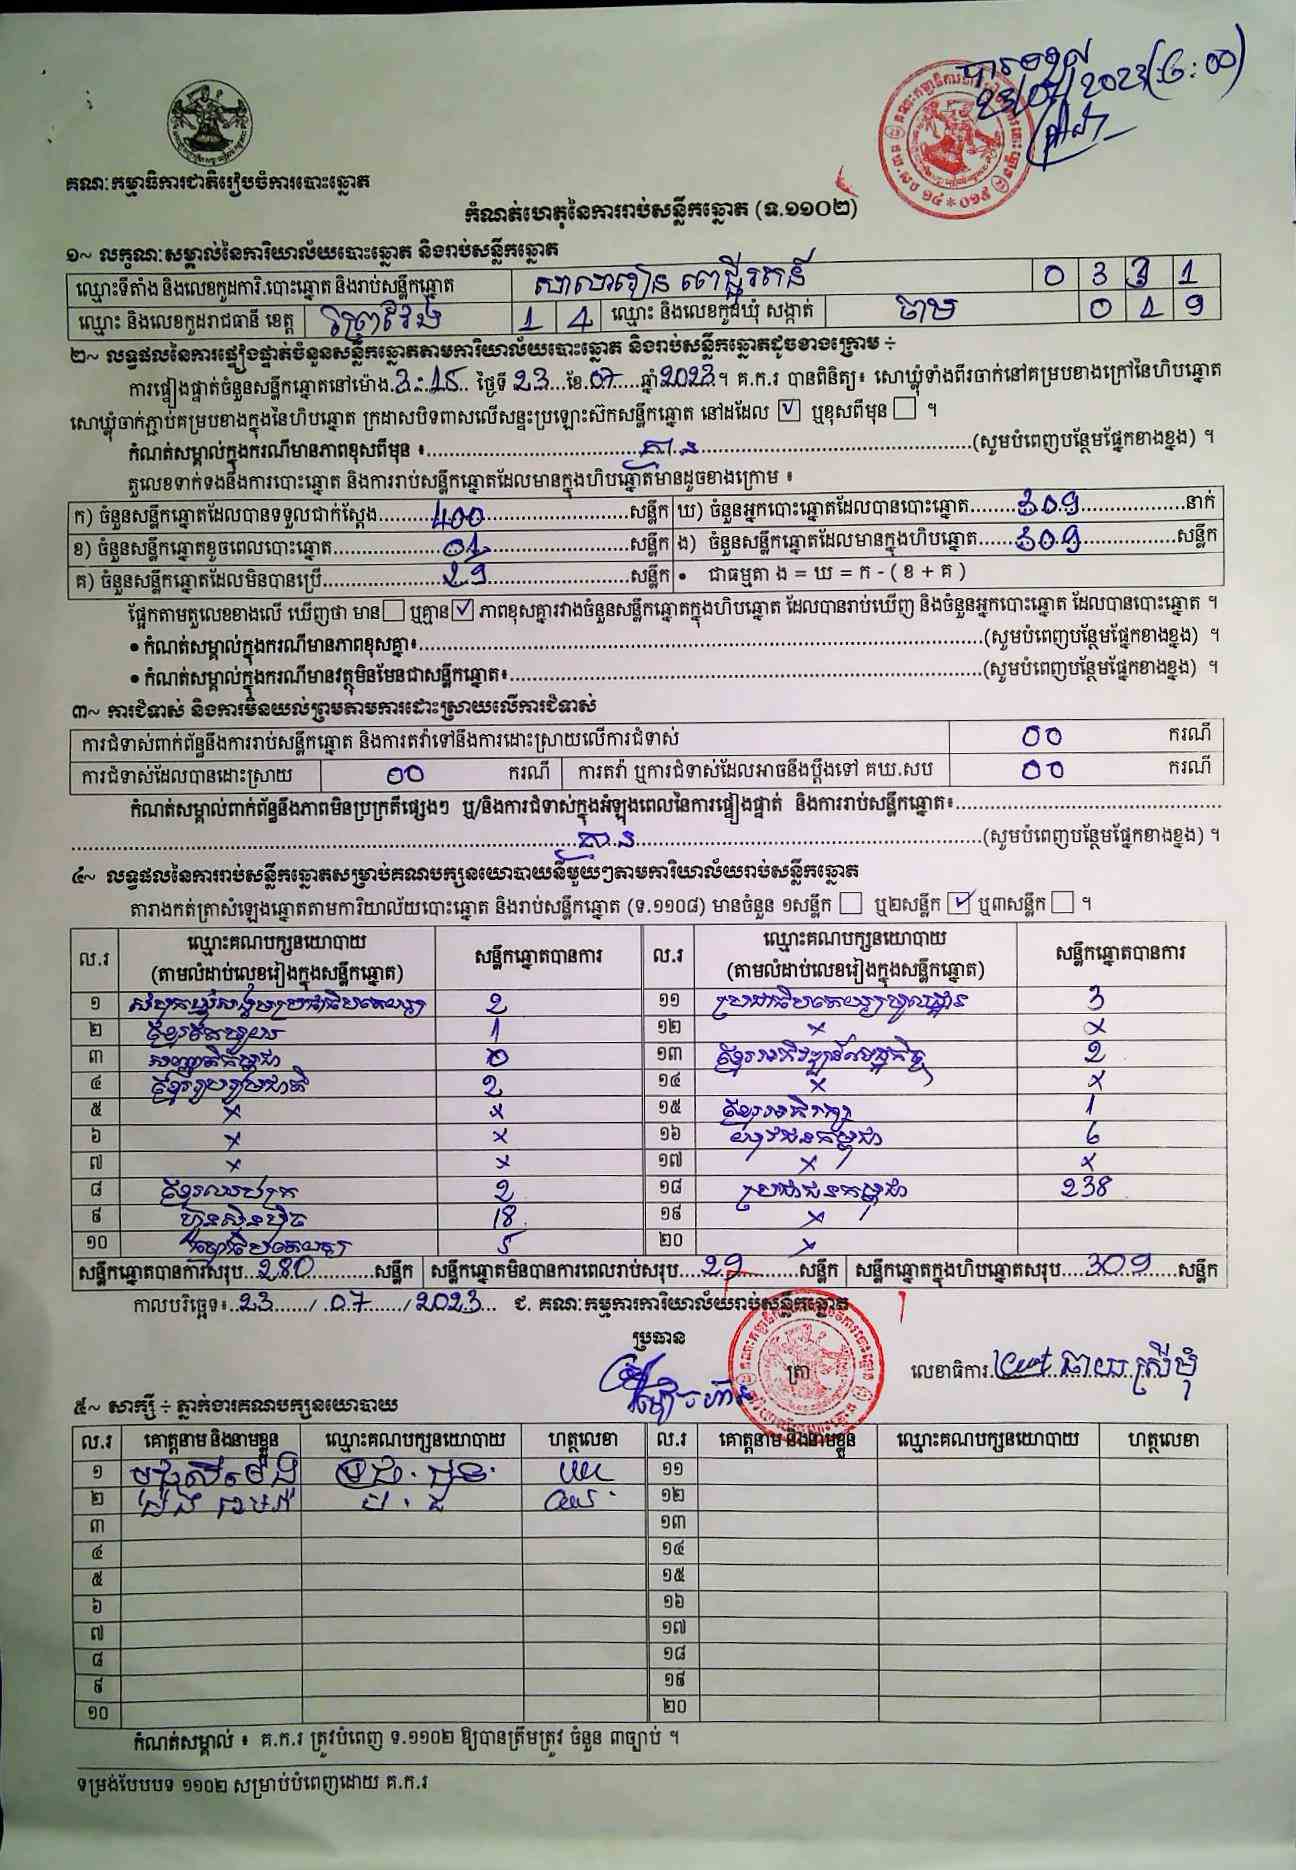 គណៈកម្មាធិការជាតិរៀបចំការបោះឆ្នោត
កំណត់ហេតុនៃការរាប់សន្លឹកឆ្នោត (ទ.១១០២)
១~ លក្ខណៈសម្គាល់នៃការិយាល័យបោះឆ្នោត និងរាប់សន្លឹកឆ្នោត
ឈ្មោះទីតាំង និងលេខកូដការិ.បោះឆ្នោត និងរាប់សន្លឹកឆ្នោត សាលារៀន 0 3 3 1
ឈ្មោះ និងលេខកូដរាជធានី ខេត្ត ព្រៃវែង 1 4 ឈ្មោះ និងលេខកូដឃុំ សង្កាត់ ចាម 0 1 9
២~ លទ្ធផលនៃការផ្ទៀងផ្ទាត់ចំនួនសន្លឹកឆ្នោតតាមការិយាល័យបោះឆ្នោត និងរាប់សន្លឹកឆ្នោតដូចខាងក្រោម ÷
ការផ្ទៀងផ្ទាត់ចំនួនសន្លឹកឆ្នោតនៅម៉ោង 3:15 ថ្ងៃទី 23 ខែ 07 ឆ្នាំ 2023។ គ.ក.រ បានពិនិត្យ៖ សោឃ្លុំទាំងពីរចាក់នៅគម្របខាងក្រៅនៃហិបឆ្នោត
សោឃ្លុំចាក់ភ្ជាប់គម្របខាងក្នុងនៃហិបឆ្នោត ក្រដាសបិទពាសលើសន្ទះប្រឡោះស៊កសន្លឹកឆ្នោត នៅដដែល ☑ ឬខុសពីមុន ☐ ។
កំណត់សម្គាល់ក្នុងករណីមានភាពខុសពីមុន ៖ គ្មាន (សូមបំពេញបន្ថែមផ្នែកខាងខ្នង) ។
តួលេខទាក់ទងនឹងការបោះឆ្នោត និងការរាប់សន្លឹកឆ្នោតដែលមានក្នុងហិបឆ្នោតមានដូចខាងក្រោម ៖
ក) ចំនួនសន្លឹកឆ្នោតដែលបានទទួលជាក់ស្តែង 400 សន្លឹក ឃ) ចំនួនអ្នកបោះឆ្នោតដែលបានបោះឆ្នោត 309 នាក់
ខ) ចំនួនសន្លឹកឆ្នោតខូចពេលបោះឆ្នោត 01 សន្លឹក ង) ចំនួនសន្លឹកឆ្នោតដែលមានក្នុងហិបឆ្នោត 309 សន្លឹក
គ) ចំនួនសន្លឹកឆ្នោតដែលមិនបានប្រើ សន្លឹក • ជាធម្មតា ង = ឃ = ក - ( ខ + គ )
ផ្អែកតាមតួលេខខាងលើ ឃើញថា មាន ☐ ឬគ្មាន ☑ ភាពខុសគ្នារវាងចំនួនសន្លឹកឆ្នោតក្នុងហិបឆ្នោត ដែលបានរាប់ឃើញ និងចំនួនអ្នកបោះឆ្នោត ដែលបានបោះឆ្នោត ។
• កំណត់សម្គាល់ក្នុងករណីមានភាពខុសគ្នា៖ (សូមបំពេញបន្ថែមផ្នែកខាងខ្នង) ។
• កំណត់សម្គាល់ក្នុងករណីមានវត្ថុមិនមែនជាសន្លឹកឆ្នោត៖ (សូមបំពេញបន្ថែមផ្នែកខាងខ្នង) ។
៣~ ការជំទាស់ និងការមិនយល់ព្រមតាមការដោះស្រាយលើការជំទាស់
ការជំទាស់ពាក់ព័ន្ធនឹងការរាប់សន្លឹកឆ្នោត និងការតវ៉ាទៅនឹងការដោះស្រាយលើការជំទាស់ 00 ករណី
ការជំទាស់ដែលបានដោះស្រាយ 00 ករណី ការតវ៉ា ឬការជំទាស់ដែលអាចនឹងប្តឹងទៅ គឃ.សប 00 ករណី
កំណត់សម្គាល់ពាក់ព័ន្ធនឹងភាពមិនប្រក្រតីផ្សេងៗ ឬ/និងការជំទាស់ក្នុងអំឡុងពេលនៃការផ្ទៀងផ្ទាត់ និងការរាប់សន្លឹកឆ្នោត៖
គ្មាន (សូមបំពេញបន្ថែមផ្នែកខាងខ្នង) ។
៤~ លទ្ធផលនៃការរាប់សន្លឹកឆ្នោតសម្រាប់គណបក្សនយោបាយនីមួយៗតាមការិយាល័យរាប់សន្លឹកឆ្នោត
តារាងកត់ត្រាសំឡេងឆ្នោតតាមការិយាល័យបោះឆ្នោត និងរាប់សន្លឹកឆ្នោត (ទ.១១០៨) មានចំនួន ១សន្លឹក ☐ ឬ២សន្លឹក ☑ ឬ៣សន្លឹក ☐ ។
ល.រ ឈ្មោះគណបក្សនយោបាយ (តាមលំដាប់លេខរៀងក្នុងសន្លឹកឆ្នោត) សន្លឹកឆ្នោតបានការ ល.រ ឈ្មោះគណបក្សនយោបាយ (តាមលំដាប់លេខរៀងក្នុងសន្លឹកឆ្នោត) សន្លឹកឆ្នោតបានការ
១ សំបុកឃ្មុំសង្គមប្រជាធិបតេយ្យ 2 ១១ ប្រជាធិបតេយ្យមូលដ្ឋាន 3
២ ខ្មែរតែមួយ 1 ១២ x x
៣ សញ្ជាតិកម្ពុជា 0 ១៣ ខ្មែរអភិវឌ្ឍន៍សេដ្ឋកិច្ច 2
៤ ខ្មែររួបរួមជាតិ 2 ១៤ x x
៥ x x ១៥ ខ្មែរអភិរក្ស 1
៦ x x ១៦ យុវជនកម្ពុជា 6
៧ x x ១៧ x x
៨ ខ្មែរឈប់ក្រ 2 ១៨ ប្រជាជនកម្ពុជា 238
៩ ហ្វ៊ុនស៊ិនប៉ិច 18 ១៩ x
១០ ធម្មាធិបតេយ្យ 5 ២០ x
សន្លឹកឆ្នោតបានការសរុប 280 សន្លឹក សន្លឹកឆ្នោតមិនបានការពេលរាប់សរុប 29 សន្លឹក សន្លឹកឆ្នោតក្នុងហិបឆ្នោតសរុប 309 សន្លឹក
កាលបរិច្ឆេទ៖ 23 / 07 / 2023 ជ. គណៈកម្មការការិយាល័យរាប់សន្លឹកឆ្នោត
ប្រធាន
ត្រា
លេខាធិការ
៥~ សាក្សី ÷ ភ្នាក់ងារគណបក្សនយោបាយ
ល.រ គោត្តនាម និងនាមខ្លួន ឈ្មោះគណបក្សនយោបាយ ហត្ថលេខា ល.រ គោត្តនាម និងនាមខ្លួន ឈ្មោះគណបក្សនយោបាយ ហត្ថលេខា
១ ១១
២ ១២
៣ ១៣
៤ ១៤
៥ ១៥
៦ ១៦
៧ ១៧
៨ ១៨
៩ ១៩
១០ ២០
កំណត់សម្គាល់ ៖ គ.ក.រ ត្រូវបំពេញ ទ.១១០២ ឱ្យបានត្រឹមត្រូវ ចំនួន ៣ច្បាប់ ។
ទម្រង់បែបបទ ១១០២ សម្រាប់បំពេញដោយ គ.ក.រ